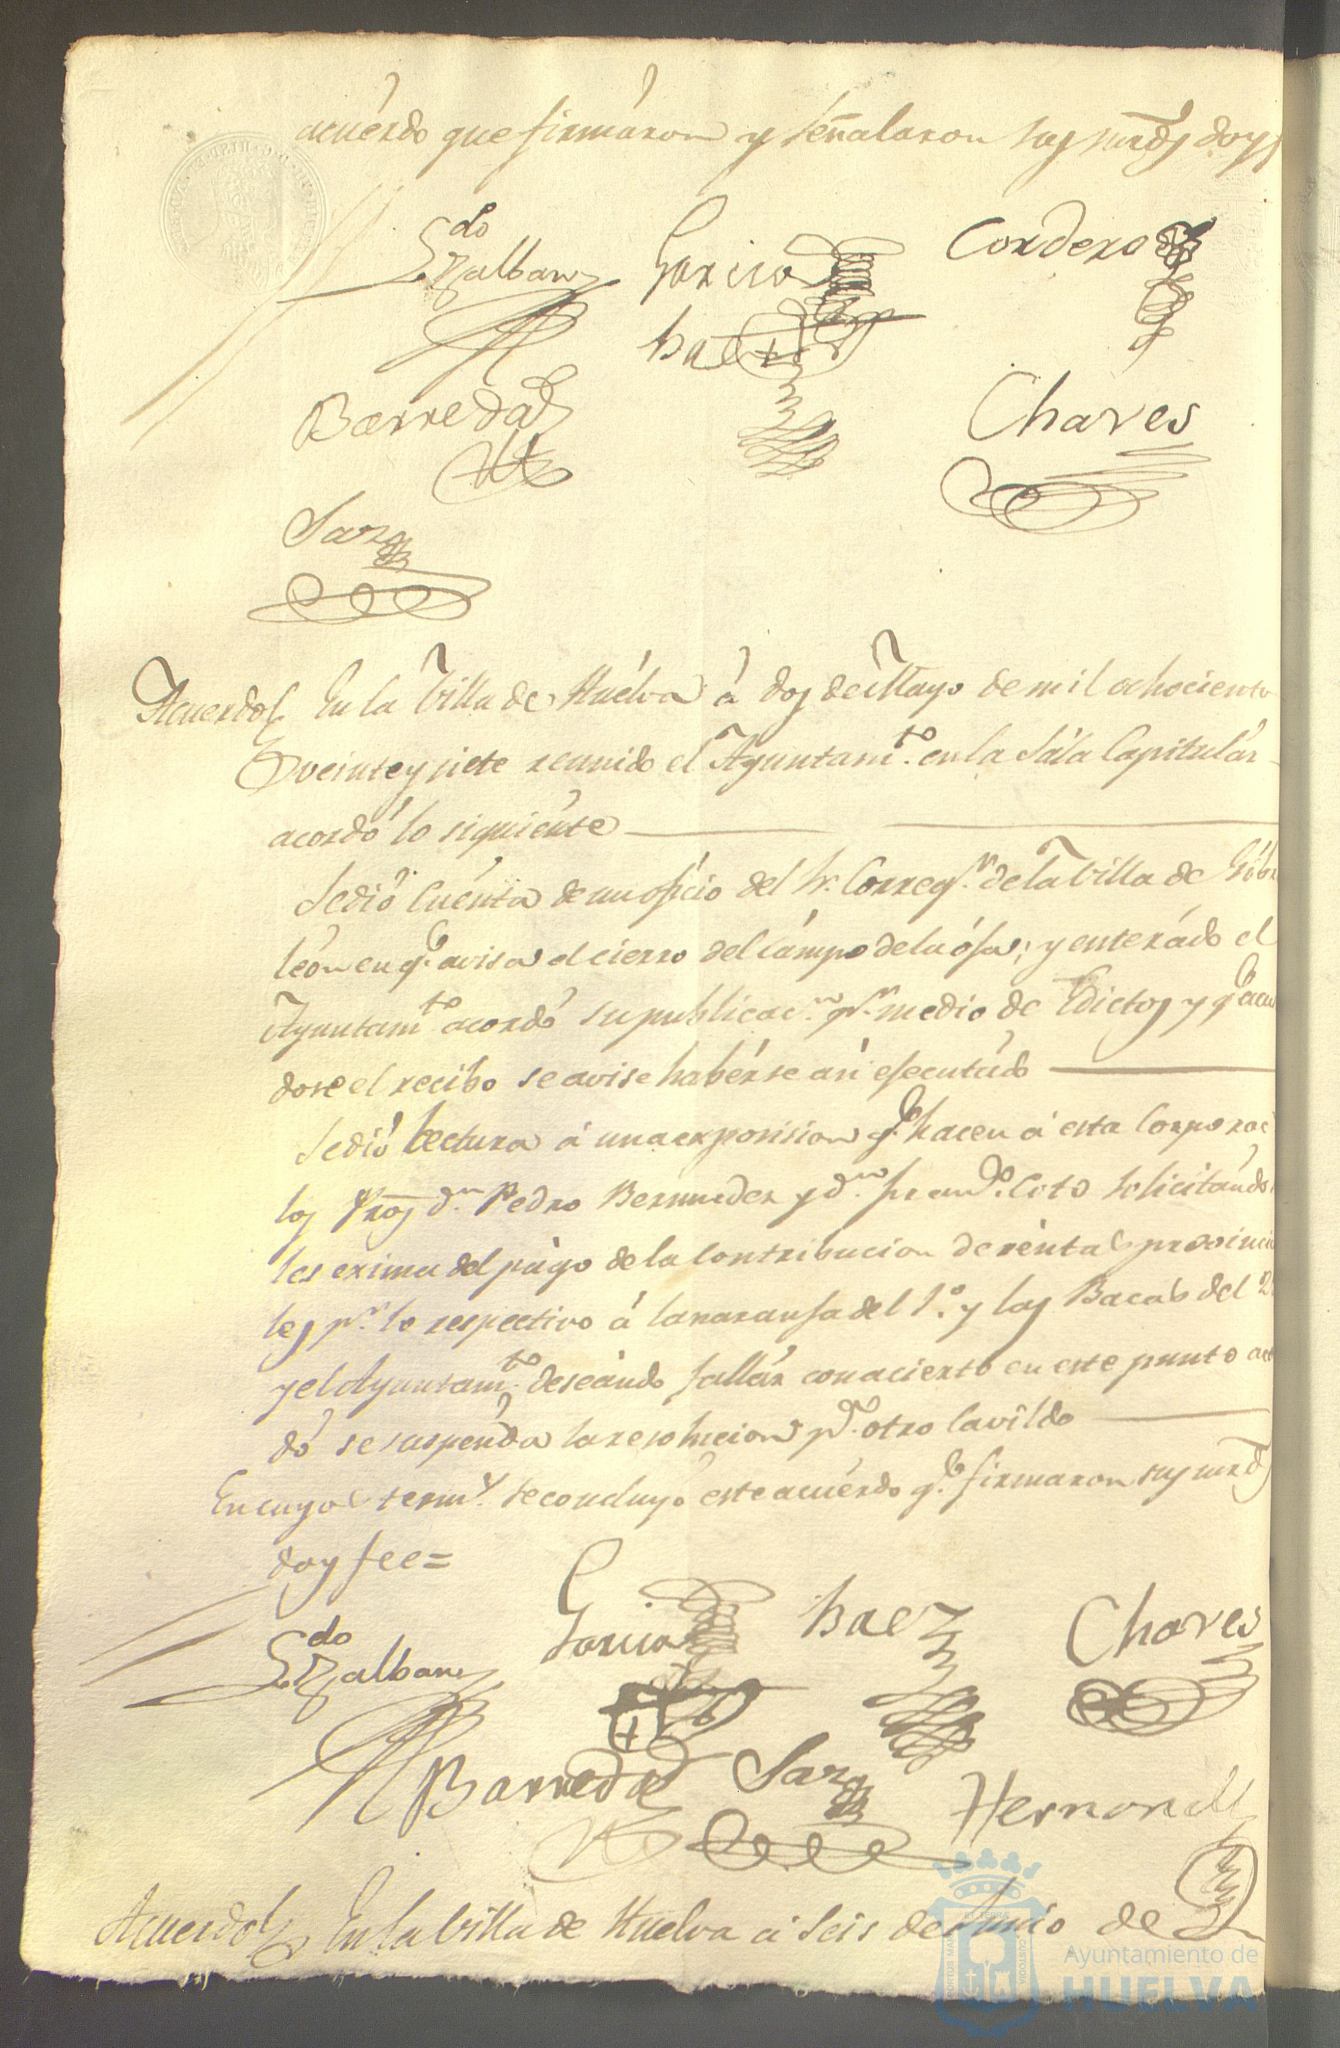 acuerdo que firmaron y señalaron sus mrds doy
Ldo Zalban Garcia Cordero
Baez
Barreda Chaves
Saz
Acuerdo En la Villa de Huelva á dos de Mayo de mil ochociento
veinte y siete reunido el Ayuntamto. en la Sala Capitular
acordó lo siguiente
Se dió Cuenta de un oficio del Sr. Corregr. de la Villa de Gibra
león en qe. avisa el cierro del campo de la ósa; y enterádo el
Ayuntamto acordó su publicacn. pr. medio de Edictos y qe acu
dose el recibo se avise habérse asi efecutado
Se dió Lectura á una exposision qe. hacen á esta Corporac
los Pros dn. Pedro Bermudez y dn. Franco. Coto solicitando
les exima del págo de la Contribucion de réntas provincia
les pr. lo respectivo á la naranja del 1o. y las Bacas del 2
y el Ayuntamto. deseándo fallár con acierto en este punto acor
dó se suspénda la resolucion pa. otro Cavildo
En cuyos terms. se concluyó este acuérdo qe. firmaron sus mrds
doy fee=
Ldo Zalban Garcia Baez Chaves
Barreda Saz Hernand
Acuerdo En la Villa de Huelva á Seis de Junio de
Ayuntamiento de
HUELVA